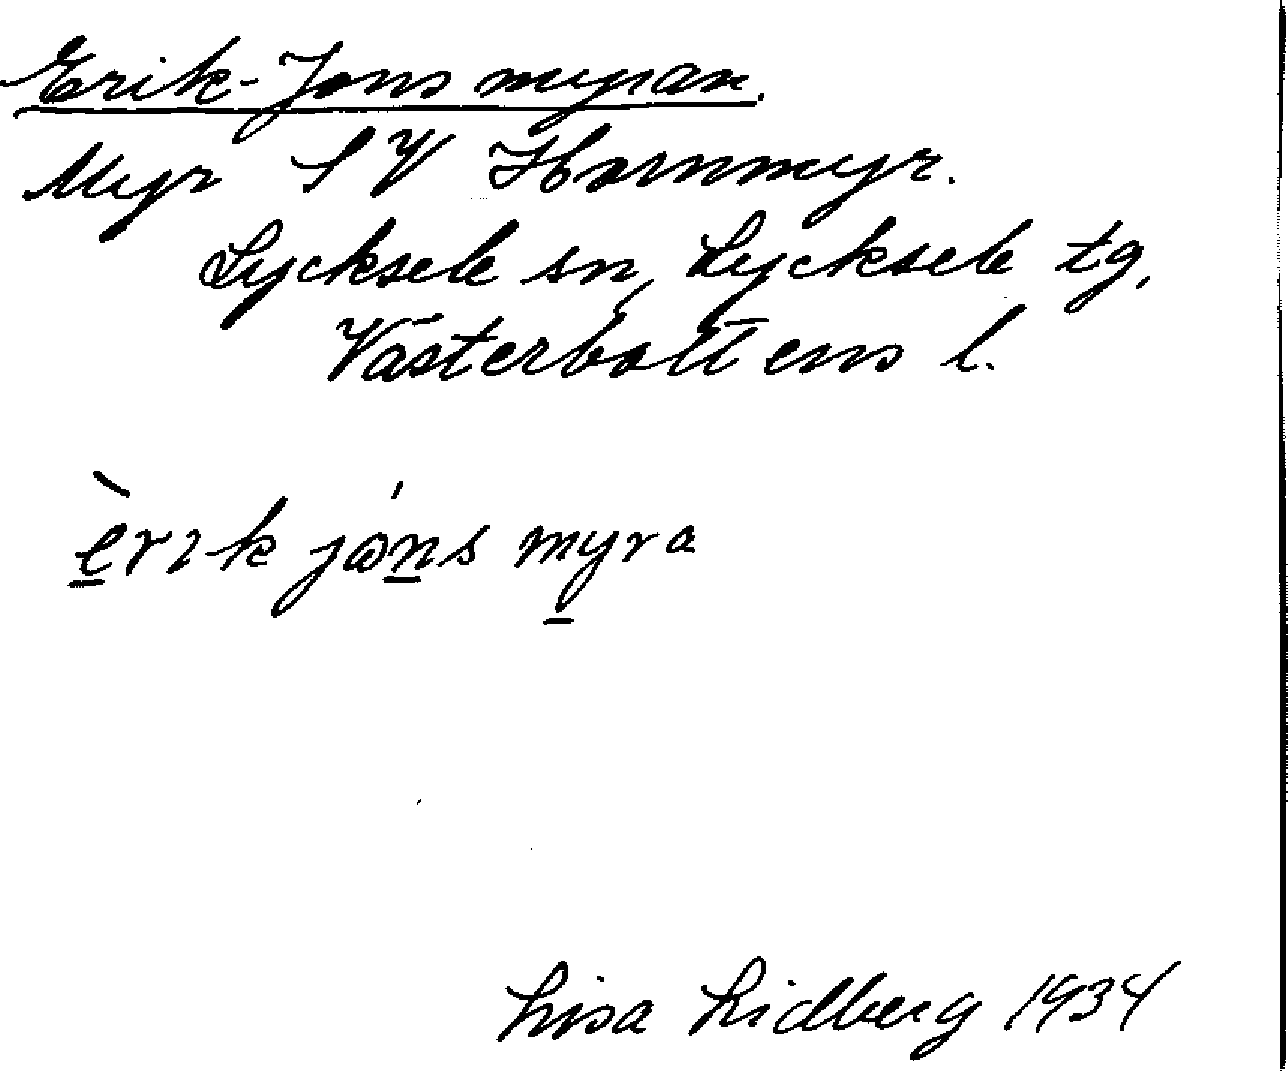 Erik-Jons myran.
Myr SV Hornmyr.
Lycksele sn, Lycksele tg,
Västerbottens l.
èrık jɷns myra
Lisa Lidberg 1934